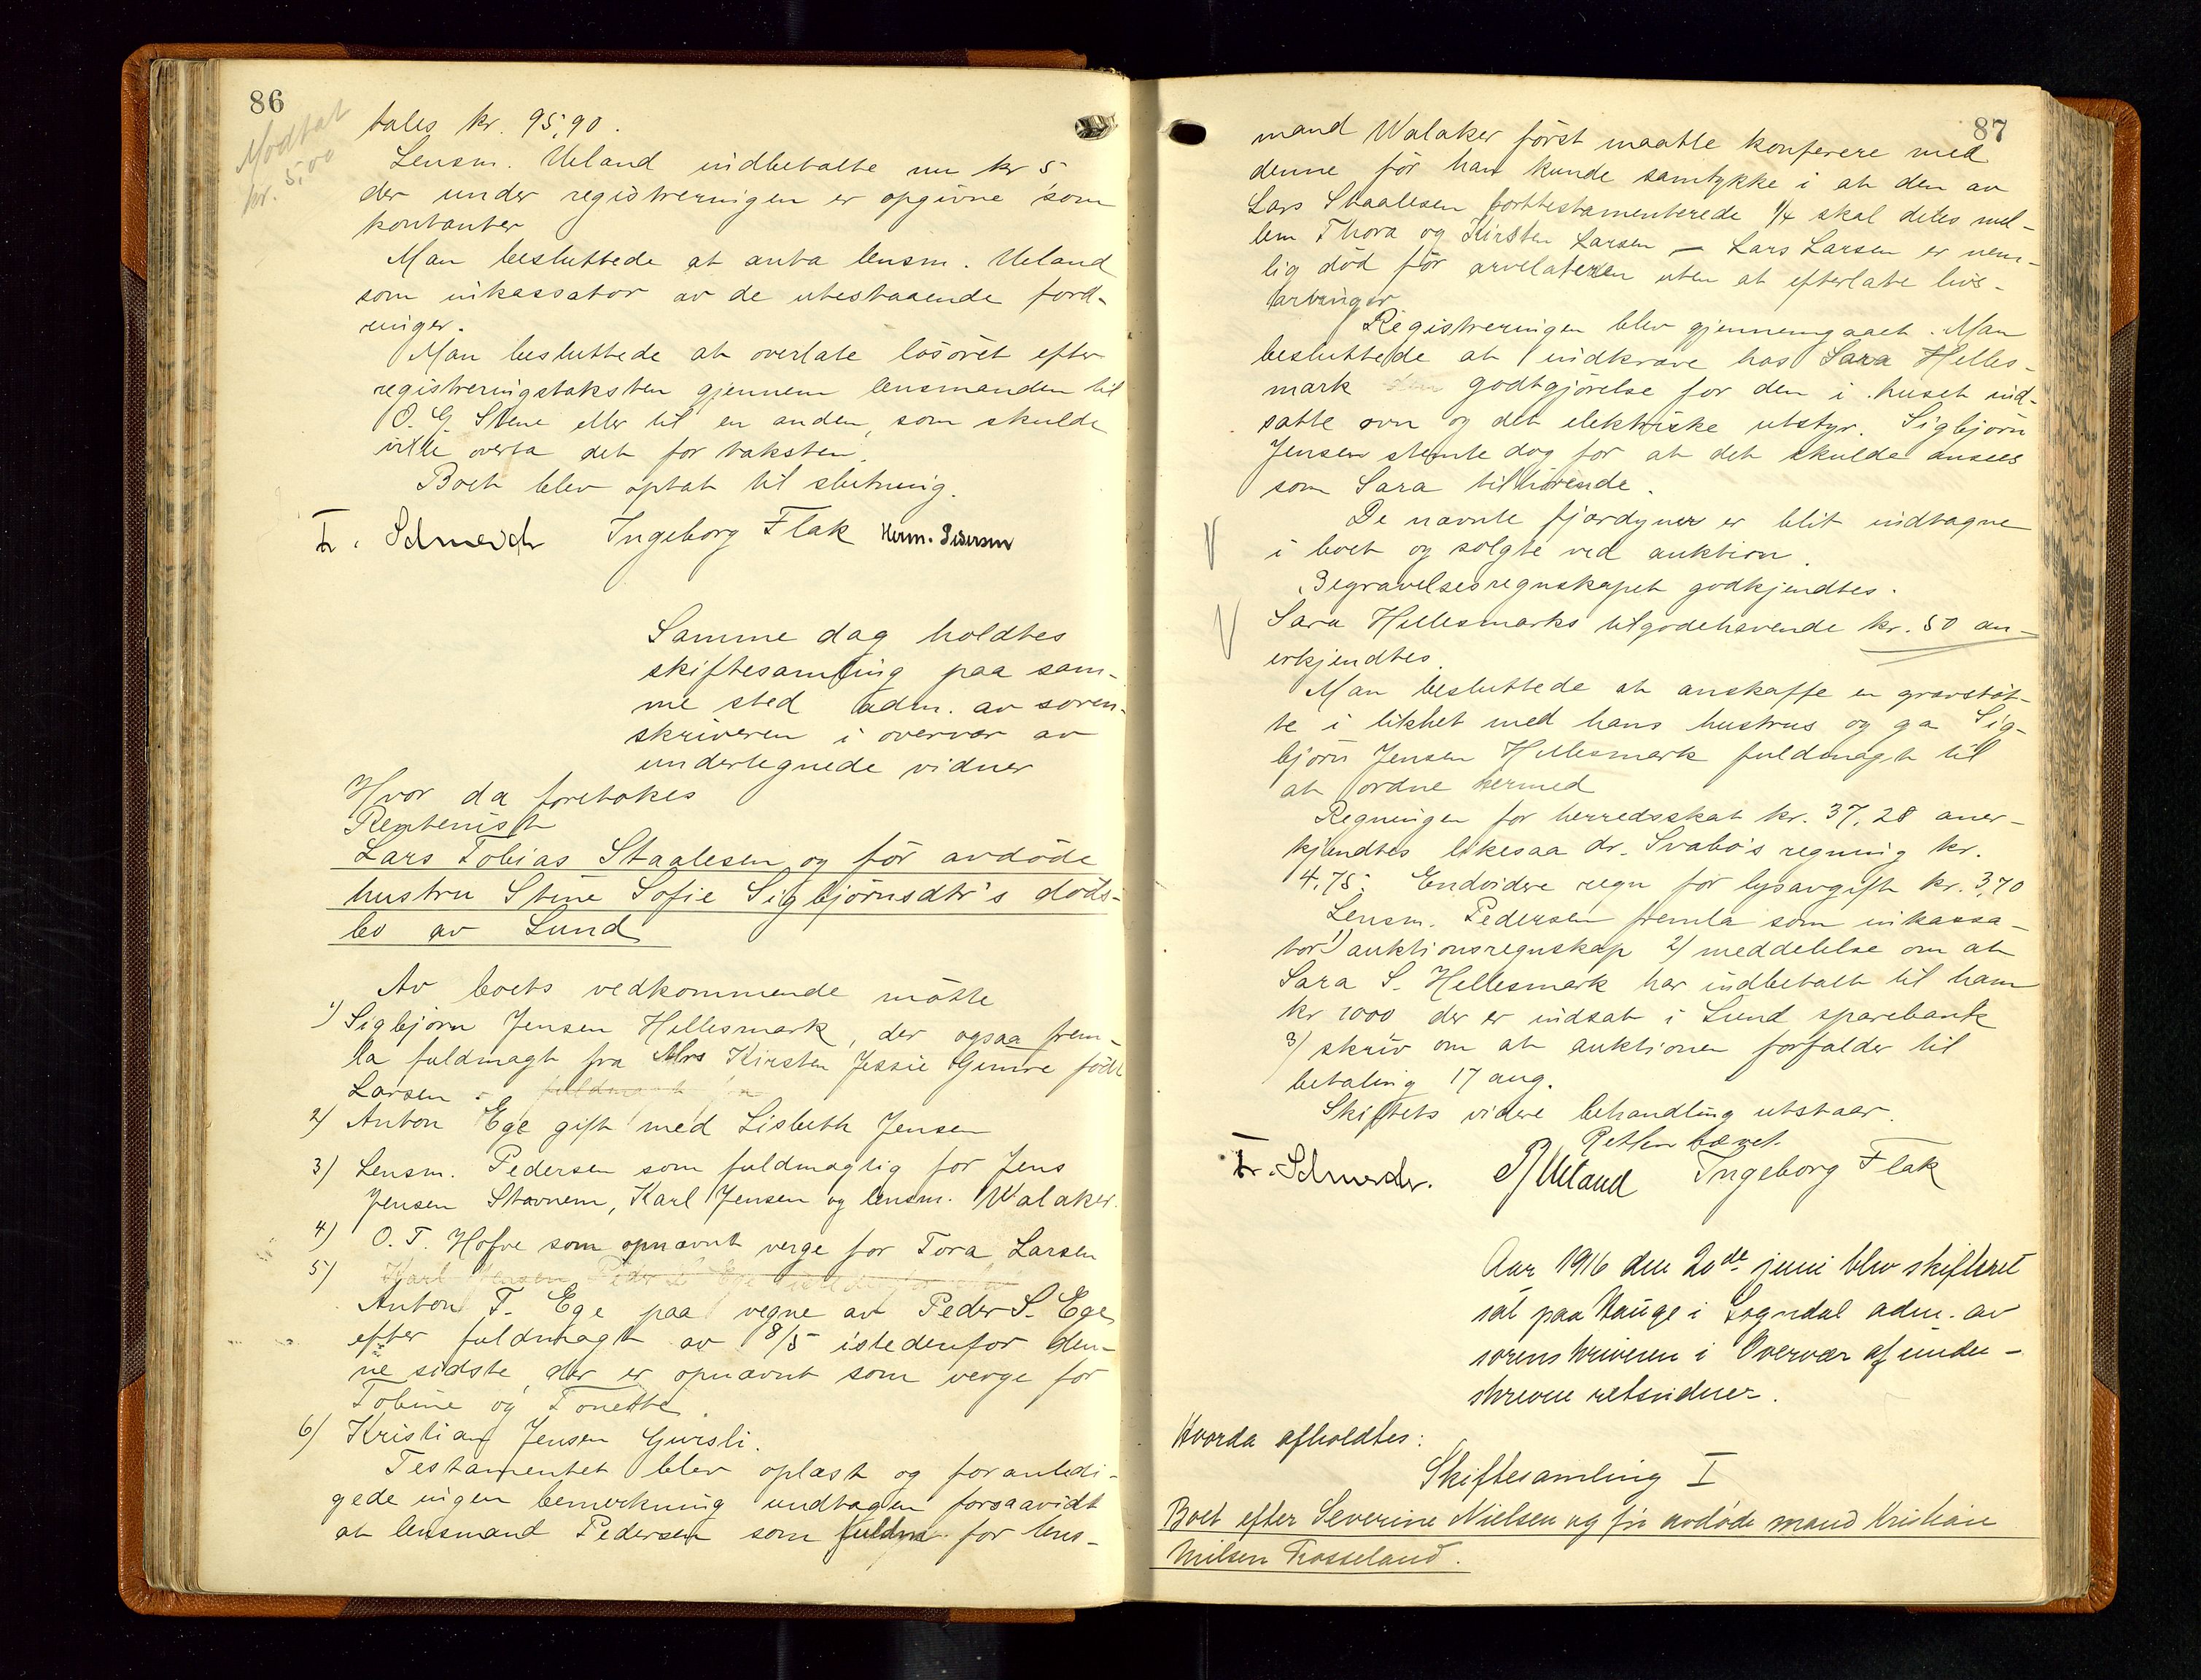 86
Modtat
kr. 5,00
tales kr. 95,90.
Lensm. Ueland indbetalte nu kr 5
der under registreringen er opgivne som
kontanter
Man besluttede at anta lensm. Ueland
som inkassator av de utestaaende ford-
ringer.
Man besluttede at overlate løsøret efter
registreringstaksten gjennem lensmanden til
O. G. Stene eller til en anden, som skulde
ville overta det for taksten.
Boet blev optat til slutning.
Fr. Schneider Ingeborg Flak Herm. Pedersen
Samme dag holdtes
skiftesamling paa sam-
me sted adm. av soren-
skriveren i overvær av
undertegnede vidner
Hvor da foretokes
Rentenist
Lars Tobias Staalesen og før avdøde
hustru Stine Sofie Sigbjørnsdtr's døds-
bo av Lund
Av boets vedkommende møtte
1) Sigbjørn Jensen Hellesmark, der ogsaa frem-
la fuldmagt fra Mrs Kirsten Jessie Gimre født
Larsen fuldmagt fra
2) Anton Ege gift med Lisbeth Jensen
3) Lensm. Pedersen som fuldmægtig for Jens
Jensen Stavnem, Karl Jensen og lensm. Walaker.
4) O. T. Hofve som opnævnt verge for Tora Larsen
5) Karl Jensen, Peder S. Ege
Anton T. Ege paa vegne av Peder S. Ege
efter fuldmagt av 8/5 istedenfor den-
ne sidste, der er opnævnt som verge for
Tobine og Tonette.
6) Kristian Jensen Gursli.
Testamentet blev oplæst og foranledi-
gede ingen bemerkning undtagen forsaavidt
at lensmand Pedersen som fuldm. for lens-
87
mand Walaker først maatte konferere med
denne før han kunde samtykke i at den av
Lars Staalesen borttestamenterede 1/4 skal deles mel-
lem Thora og Kirsten Larsen — Lars Larsen er nem-
lig død før arvelateren uten at efterlate livs-
arvinger
Registreringen blev gjennemgaaet. Man
besluttede at indkræve hos Sara Helles-
mark godtgjørelse for den i huset ind-
satte ovn og det elektriske utstyr. Sigbjørn
Jensen stemte dog for at det skulde ansees
som Sara tilhørende.
De nævnte fjærdyner er blit indtagne
i boet og solgte ved auktion.
Begravelsesregnskapet godkjendtes.
Sara Hellesmarks tilgodehavende kr. 50 an-
erkjendtes.
Man besluttede at anskaffe en gravstøt-
te i likhet med hans hustrus og ga Sig-
bjørn Jensen Hellesmark fuldmagt til
at ordne hermed
Regningen for herredsskat kr. 37,28 aner-
kjendtes likesaa dr. Svabø's regning kr.
4,75. Endvidere regn for lysavgift kr. 3,70
Lensm. Pedersen fremla som inkassa-
tor 1) auktionsregnskap 2) meddelelse om at
Sara S. Hellesmark har indbetalt til ham
kr 1000 der er indsat i Lund sparebank
3) skriv om at auktionen forfalder til
betaling 17 aug.
Skiftets videre behandling utstaar.
Retten hævet.
Fr. Schneider. PJ Ueland Ingeborg Flak
Aar 1916 den 20de juni blev skifteret
sat paa Hauge i Sogndal adm. av
sorenskriveren i Overvær af under-
skrevne retsvidner.
Hvorda afholdtes:
Skiftesamling I
Boet efter Severine Nielsen og før avdøde mand Kristian
Nielsen Frosseland.